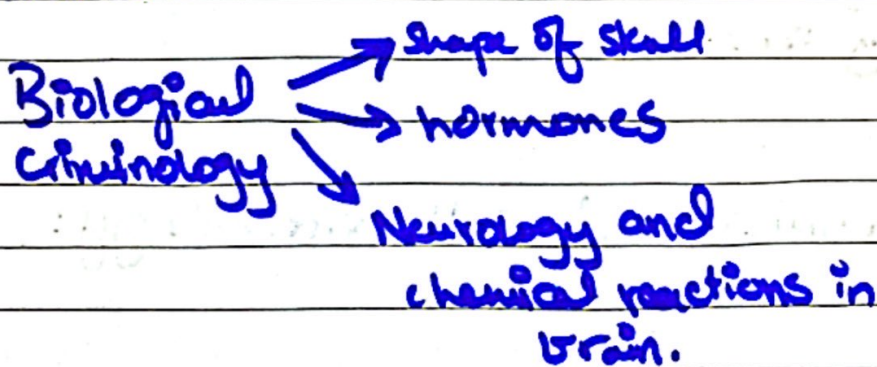 Biological
criminology
shape of skull
hormones
Neurology and
chemical reactions in
brain.